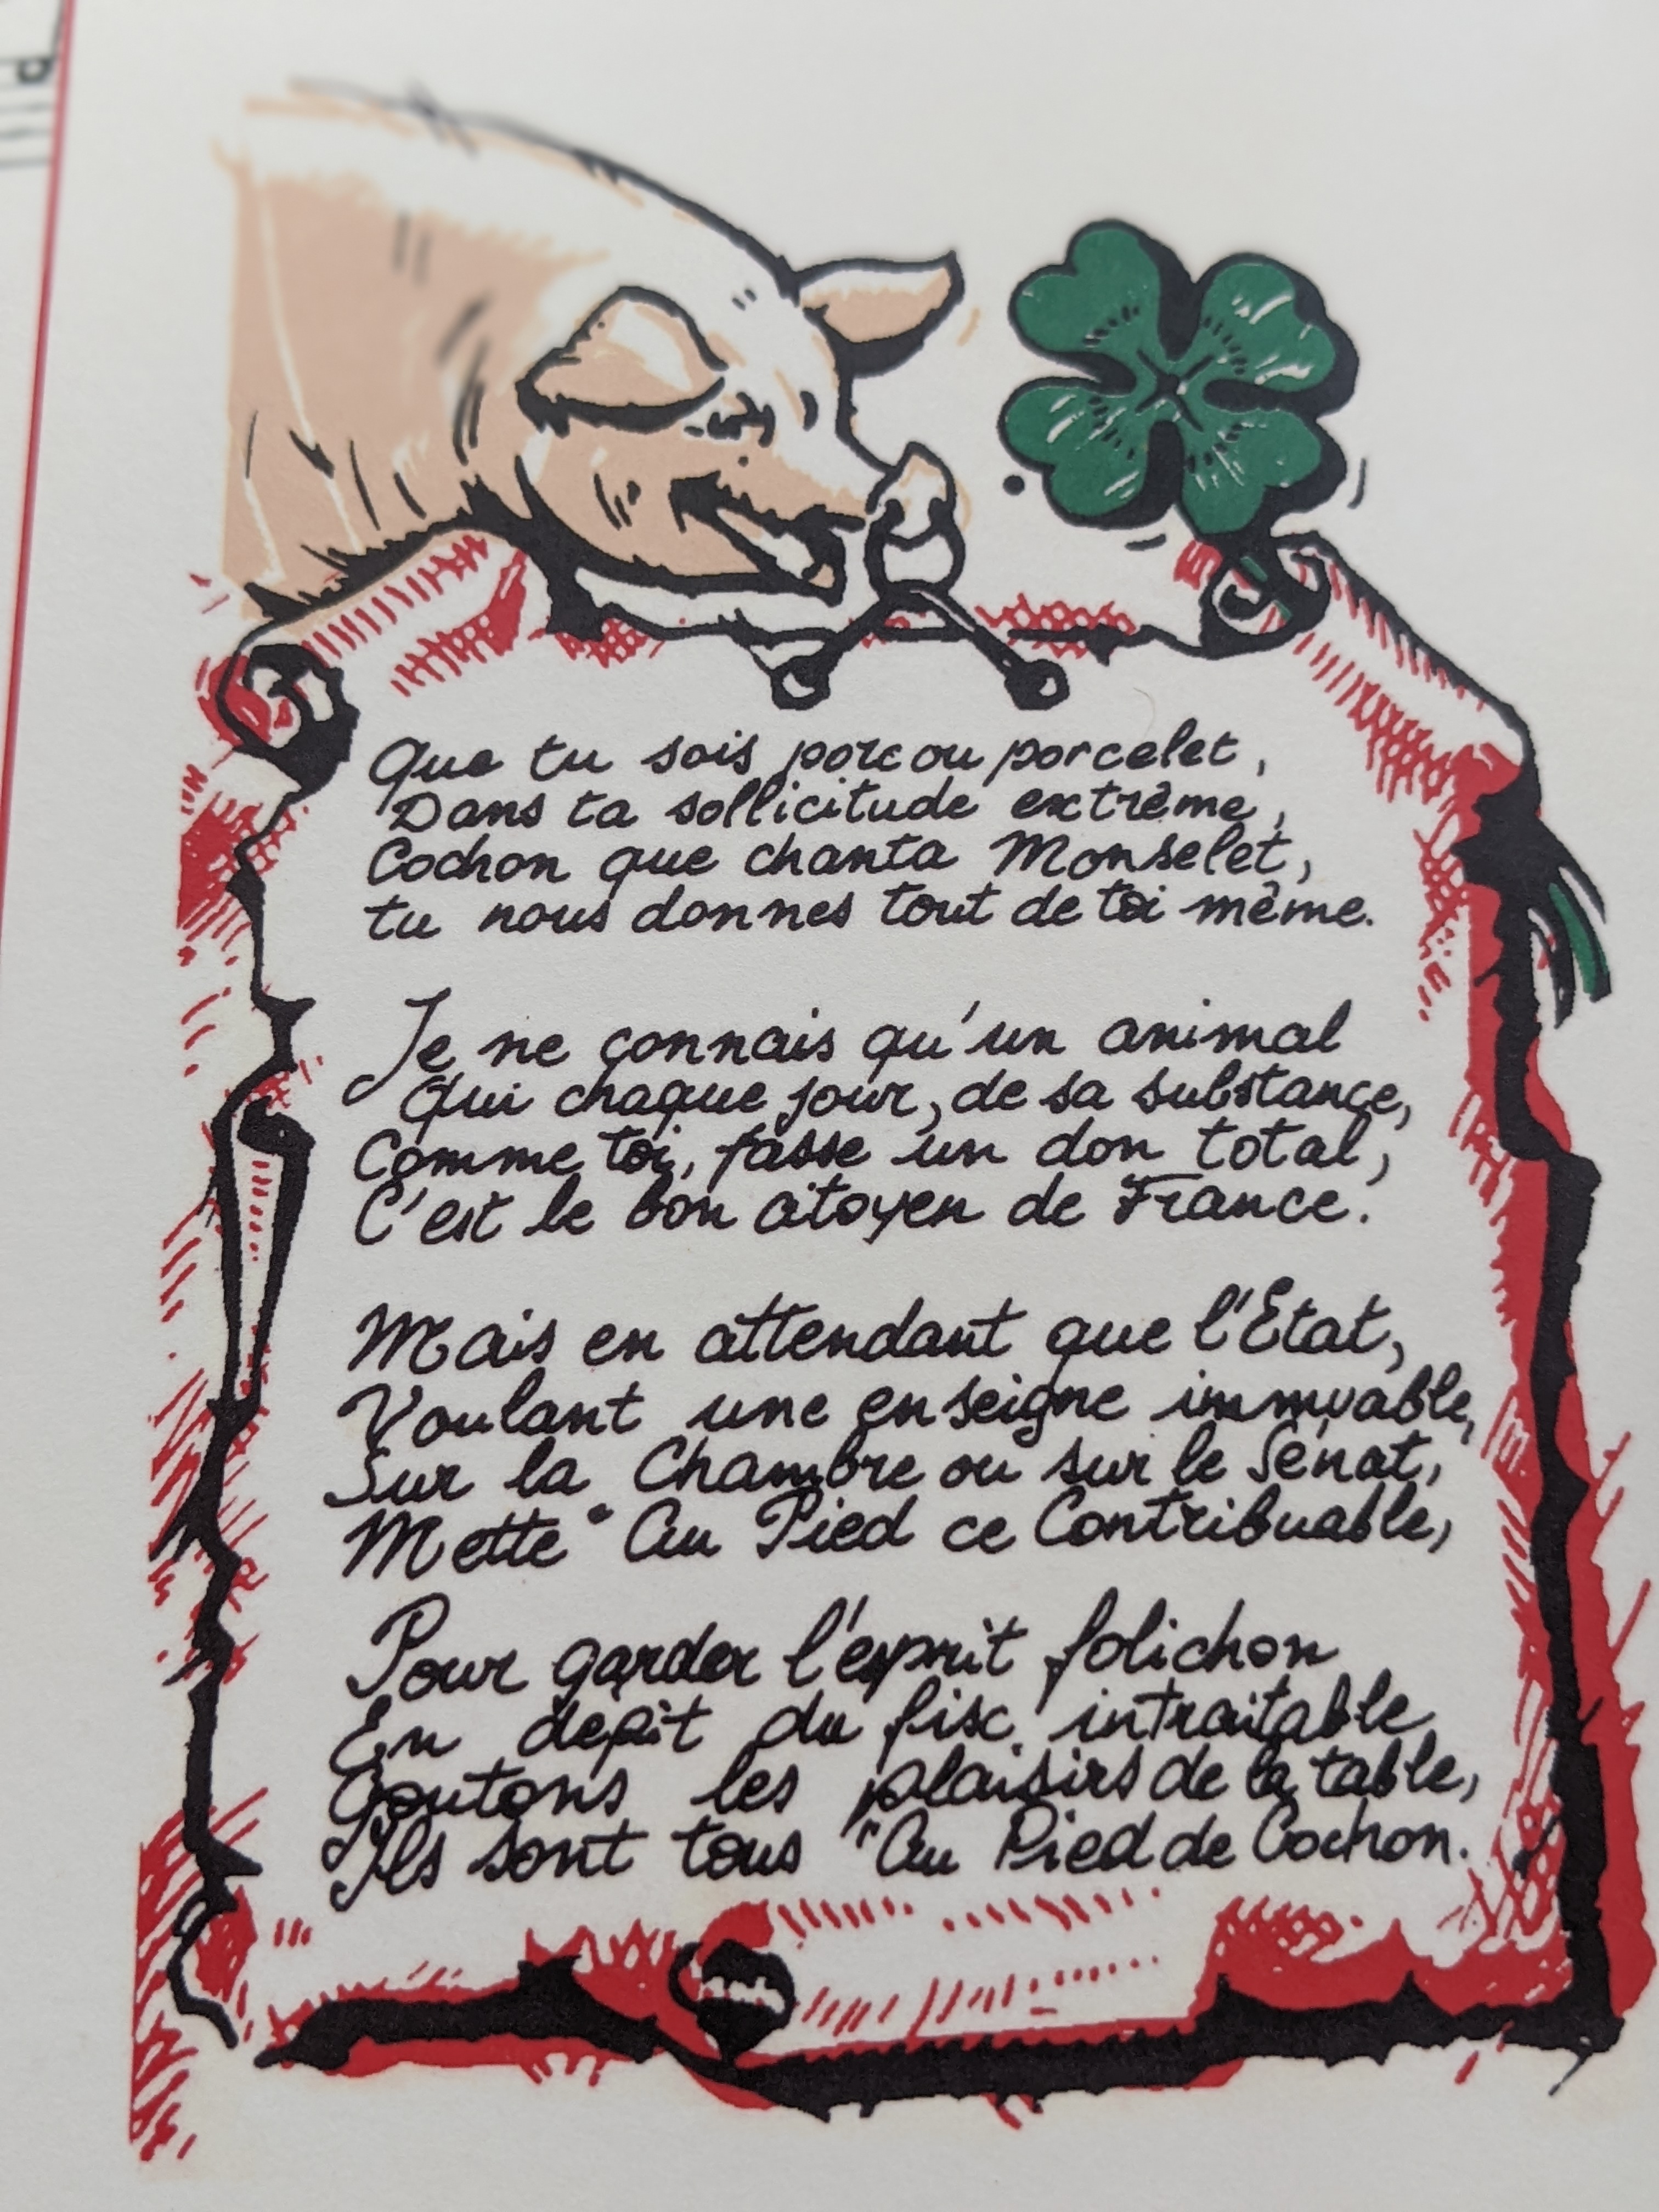 Que tu sois porc ou porcelet,
Dans ta sollicitude extrême,
Cochon que chanta Monselet,
tu nous donnes tout de toi même.
Je ne connais qu'un animal
Qui chaque jour, de sa substance,
Comme toi, fasse un don total,
C'est le bon citoyen de France.
Mais en attendant que l'Etat,
Voulant une enseigne immuable,
Sur la Chambre ou sur le Sénat,
Mette "Au Pied ce Contribuable,
Pour garder l'esprit folichon
En dépit du fisc intraitable
Goutons les plaisirs de la table,
Ils sont tous "Au Pied de Cochon.